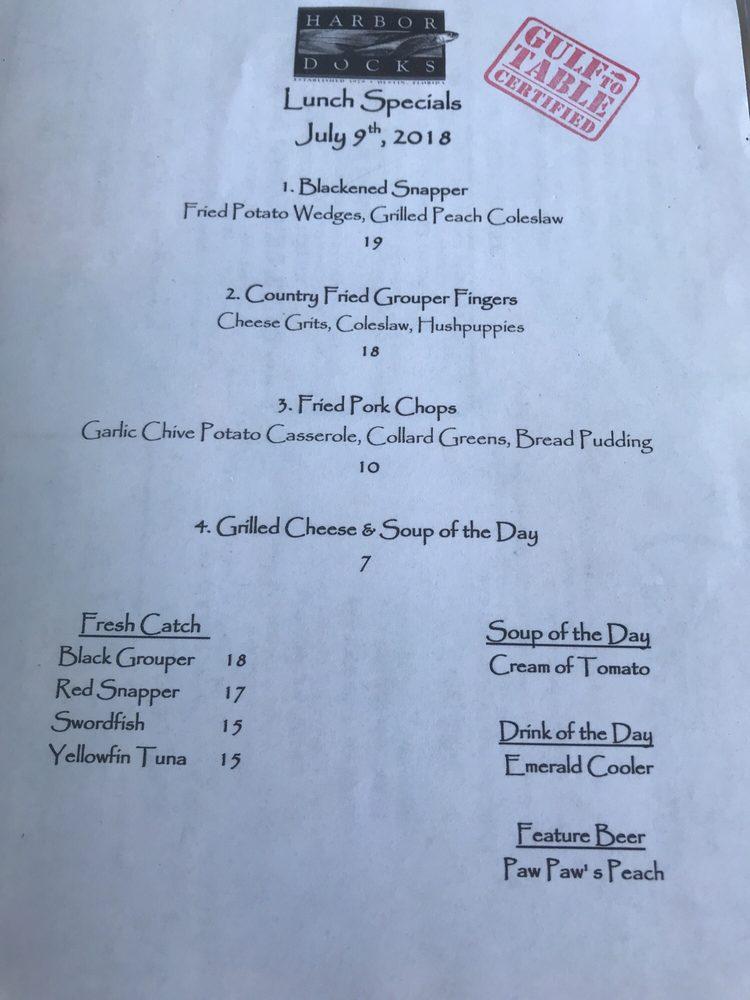 HARBOR
DOCKS
ESTABLISHED 1979 • DESTIN, FLORIDA
GULF TO
TABLE
CERTIFIED
Lunch Specials
July 9th, 2018
1. Blackened Snapper
Fried Potato Wedges, Grilled Peach Coleslaw
19
2. Country Fried Grouper Fingers
Cheese Grits, Coleslaw, Hushpuppies
18
3. Fried Pork Chops
Garlic Chive Potato Casserole, Collard Greens, Bread Pudding
10
4. Grilled Cheese & Soup of the Day
7
Fresh Catch
Black Grouper 18
Red Snapper 17
Swordfish 15
Yellowfin Tuna 15
Soup of the Day
Cream of Tomato
Drink of the Day
Emerald Cooler
Feature Beer
Paw Paw' s Peach